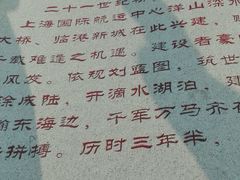 二十一世纪
上海国际航运中心洋山深水
大桥、临港新城在此兴建,
载难逢之机遇。建设者豪
风发。依规划蓝图,筑世
成陆,开滴水湖泊,建
东海边,千军万马齐
拼搏。历时三年半,